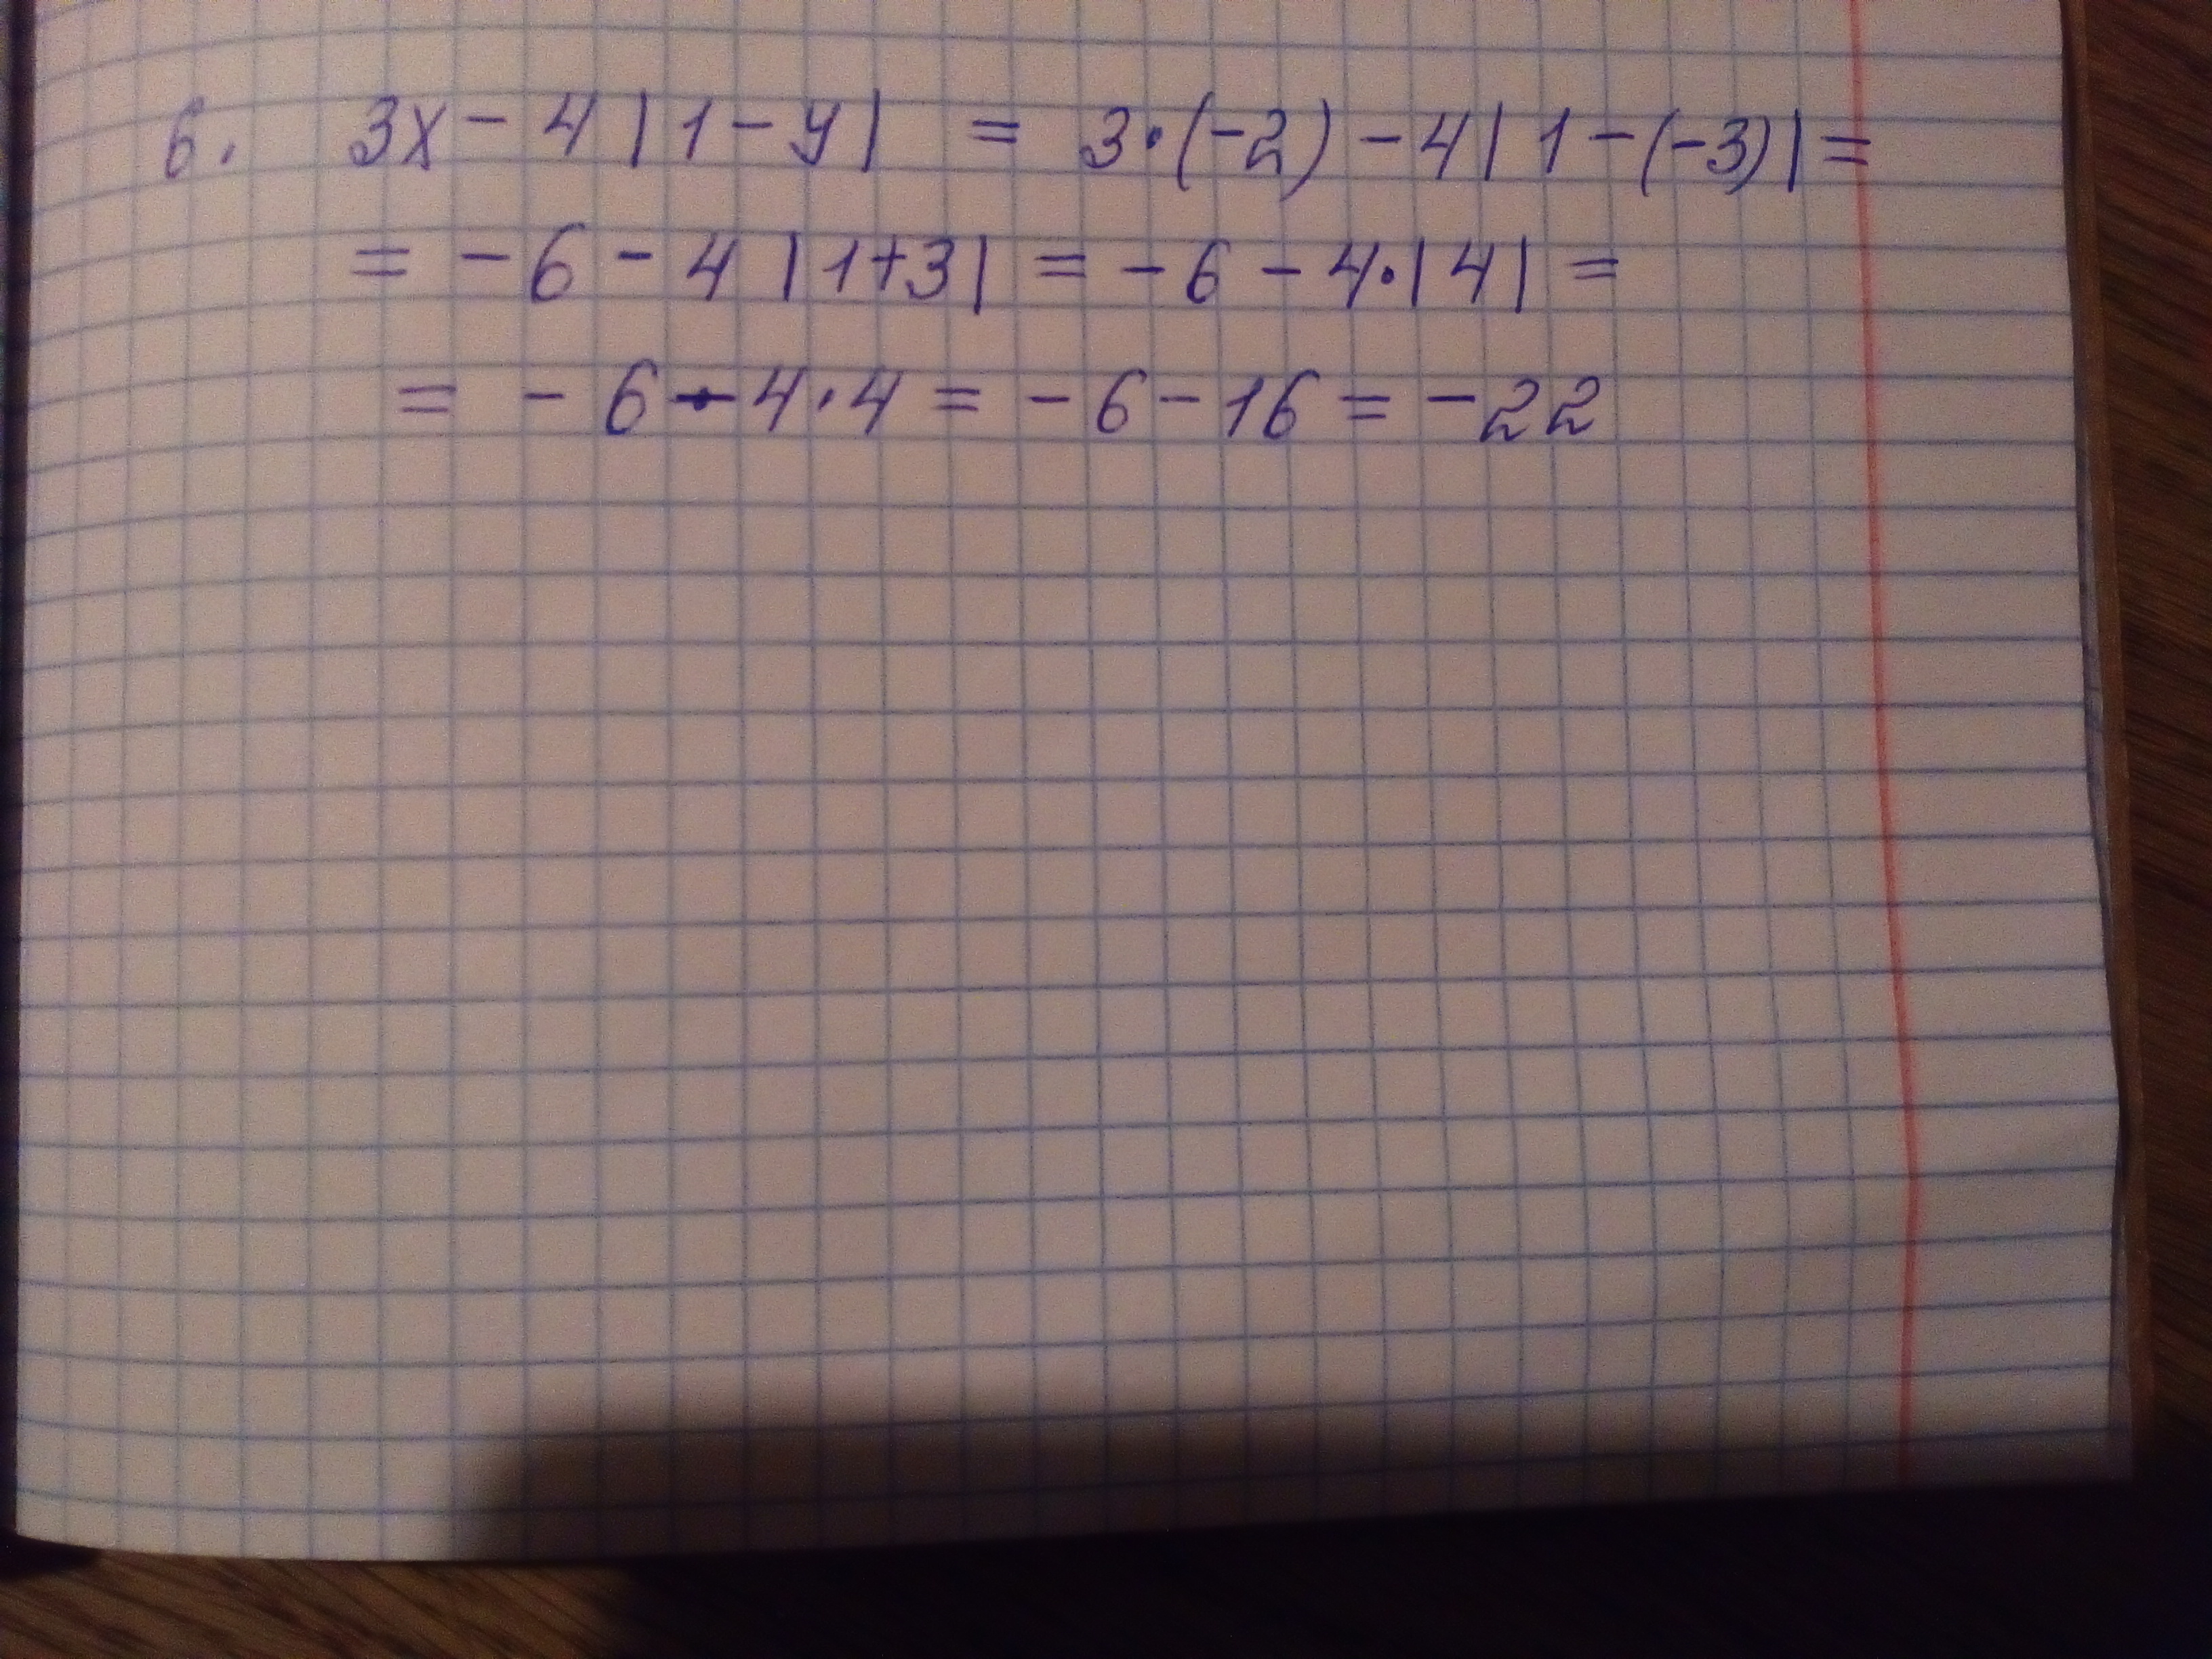 6. 3x - 4 | 1 - y | = 3·(-2) - 4 | 1 - (-3) | =
= - 6 - 4 | 1 + 3 | = - 6 - 4·| 4 | =
= - 6 - 4·4 = - 6 - 16 = - 22